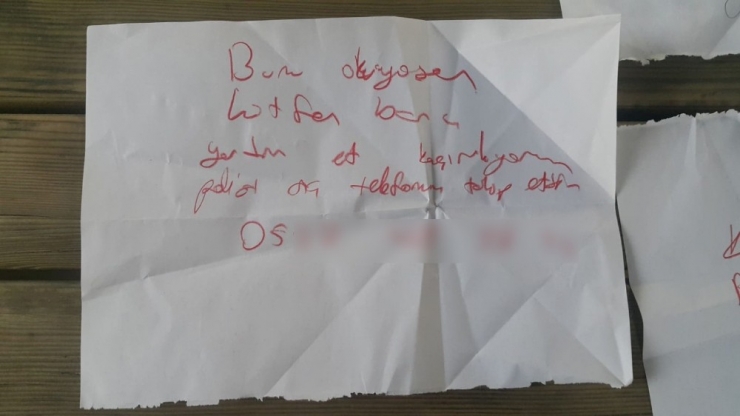 Bunu okuyosan
Lütfen bana
yardım et kaçırılıyorum
polisi ara telefonu takip etsin
05